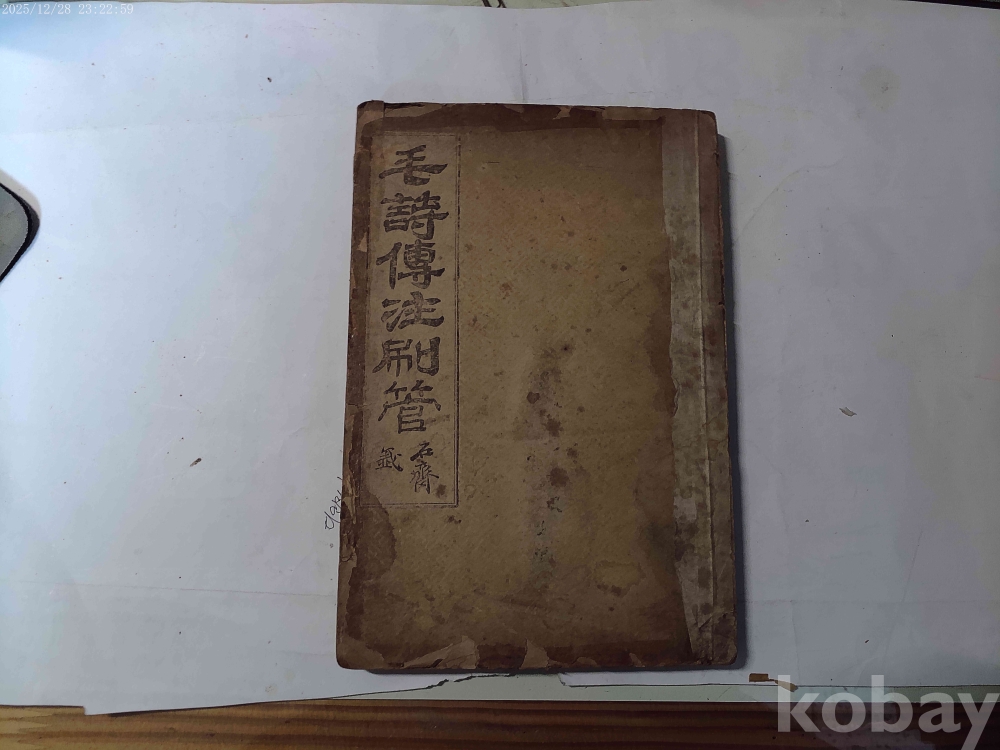 2025/12/28 23:22:59
毛詩傳注刷管
石齊
kobay